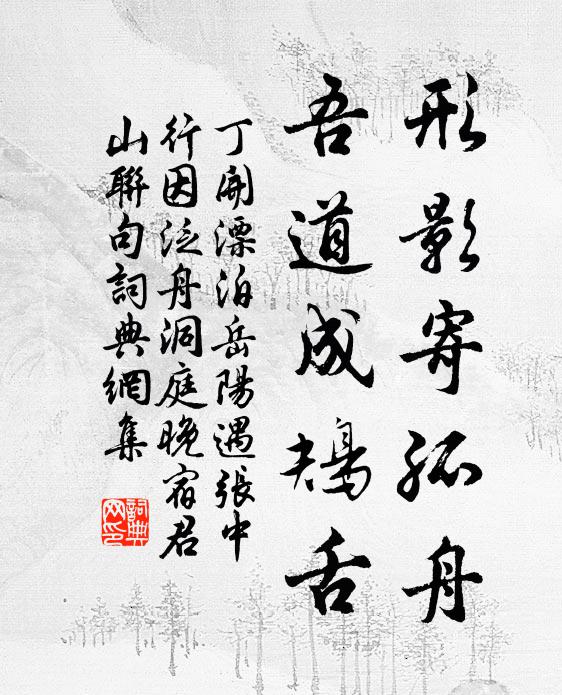 形影寄孤舟
吾道成鳺舌
丁開漂泊岳陽遇張中
行因泛舟洞庭晚宿君
山聯句詞典網集
詞典
网印